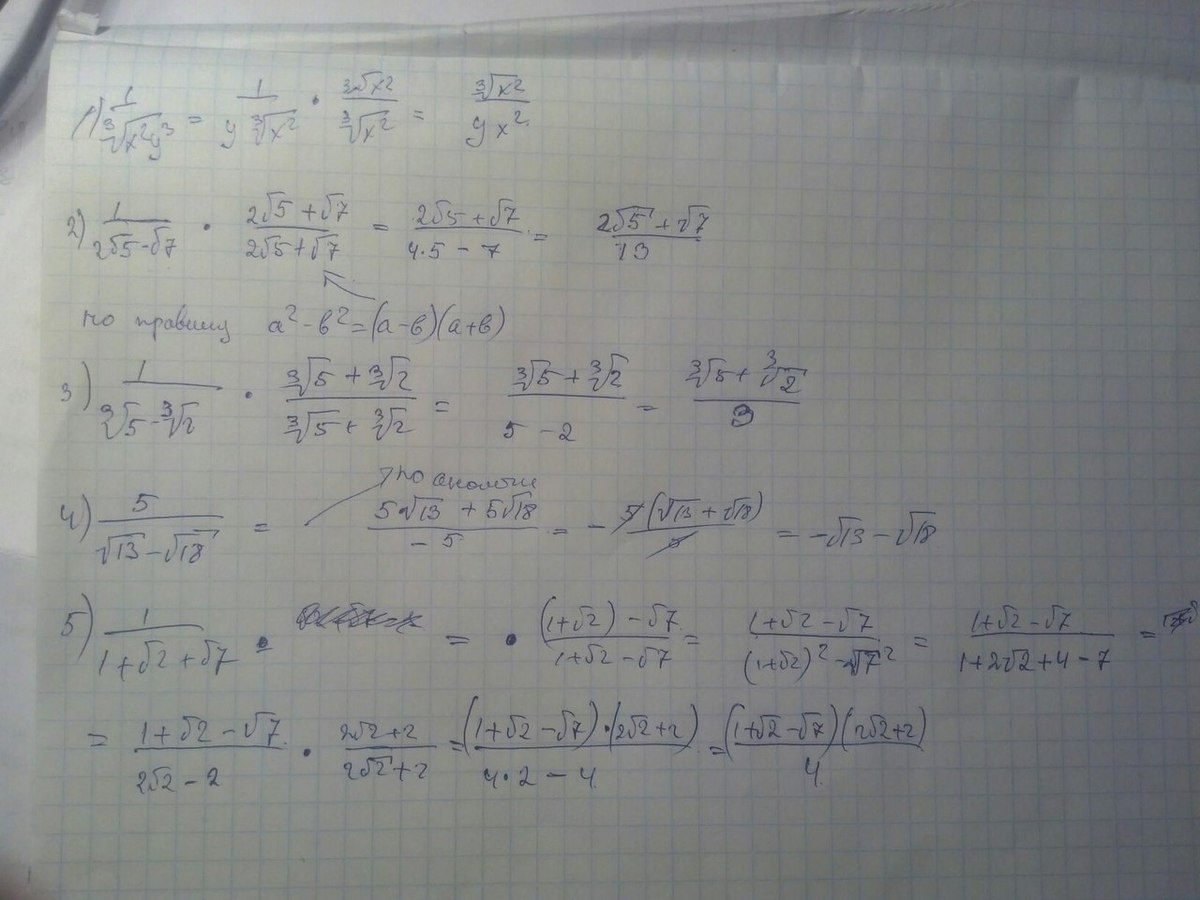 1) 1/∛(x²y³) = 1/(y ∛x²) · ∛x²/∛x² = ∛x²/(y x²)
2) 1/(2√5-√7) · (2√5+√7)/(2√5+√7) = (2√5+√7)/(4·5-7) = (2√5+√7)/13
по правилу a²-b²=(a-b)(a+b)
3) 1/(∛5-∛2) · (∛5+∛2)/(∛5+∛2) = (∛5+∛2)/(5-2) = (∛5+∛2)/3
по аналогии
4) 5/(√13-√18) = (5√13+5√18)/(-5) = -5(√13+√18)/5 = -√13-√18
5) 1/(1+√2+√7) · = · ((1+√2)-√7)/(1+√2-√7) = (1+√2-√7)/((1+√2)²-√7²) = (1+√2-√7)/(1+2√2+4-7) =
= (1+√2-√7)/(2√2-2) · (2√2+2)/(2√2+2) = ((1+√2-√7)·(2√2+2))/(4·2-4) = ((1+√2-√7)(2√2+2))/4